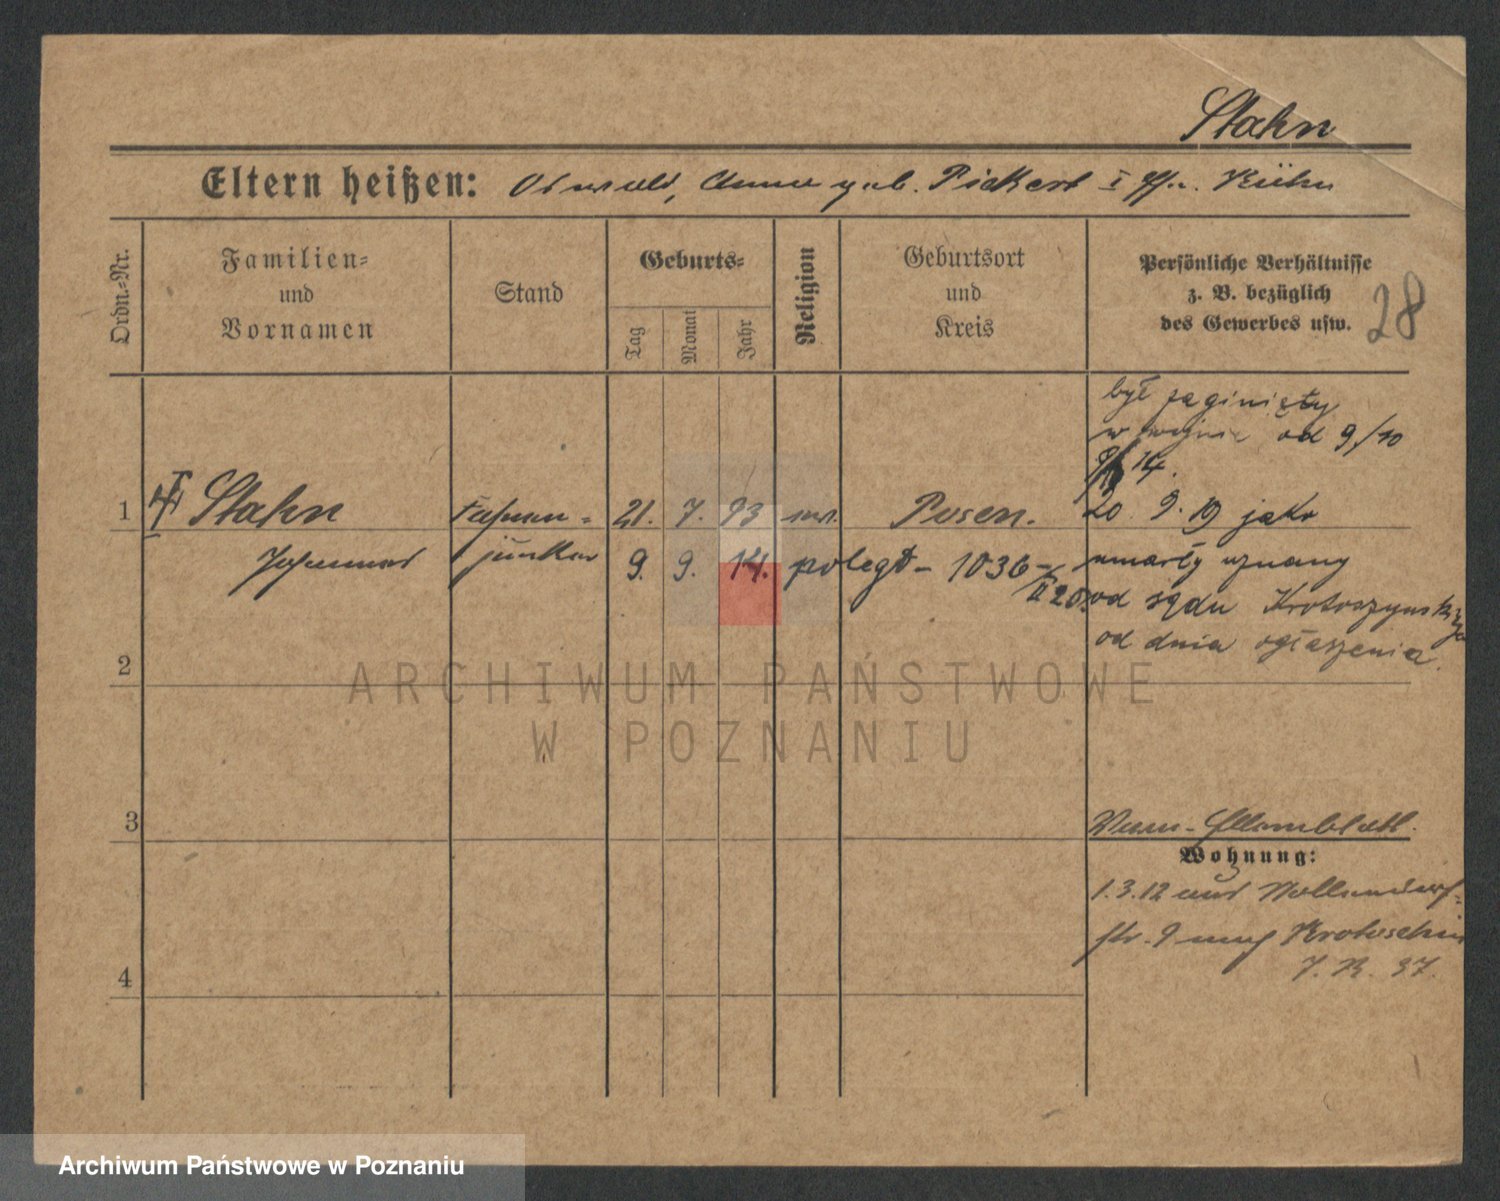 Stahn
Eltern heißen: Oswald, Anna geb. Pickert I Kühn
Ordn.-Nr.
Familien-
und
Vornamen
Stand
Geburts-
Tag
Monat
Jahr
Religion
Geburtsort
und
Kreis
Persönliche Verhältnisse
z. B. bezüglich
des Gewerbes usw.
28
był zaginięty
w wojnie od 9/10
14.
1 Stahn Fahnen- 21. 7. 93 Posen.
20. 9. 19 jako
Johannes junker 9. 9. 14. poległ - 1036 -
II 20.
umarły uznany
od sądu Krotoszyńskiego
od dnia ogłaszenia.
2
3
4
Wohnung:
1.3.12 aus Nollendorf-
str. 9 nach Krotoschin
J. R. 37.
ARCHIWUM PAŃSTWOWE
W POZNANIU
Archiwum Państwowe w Poznaniu